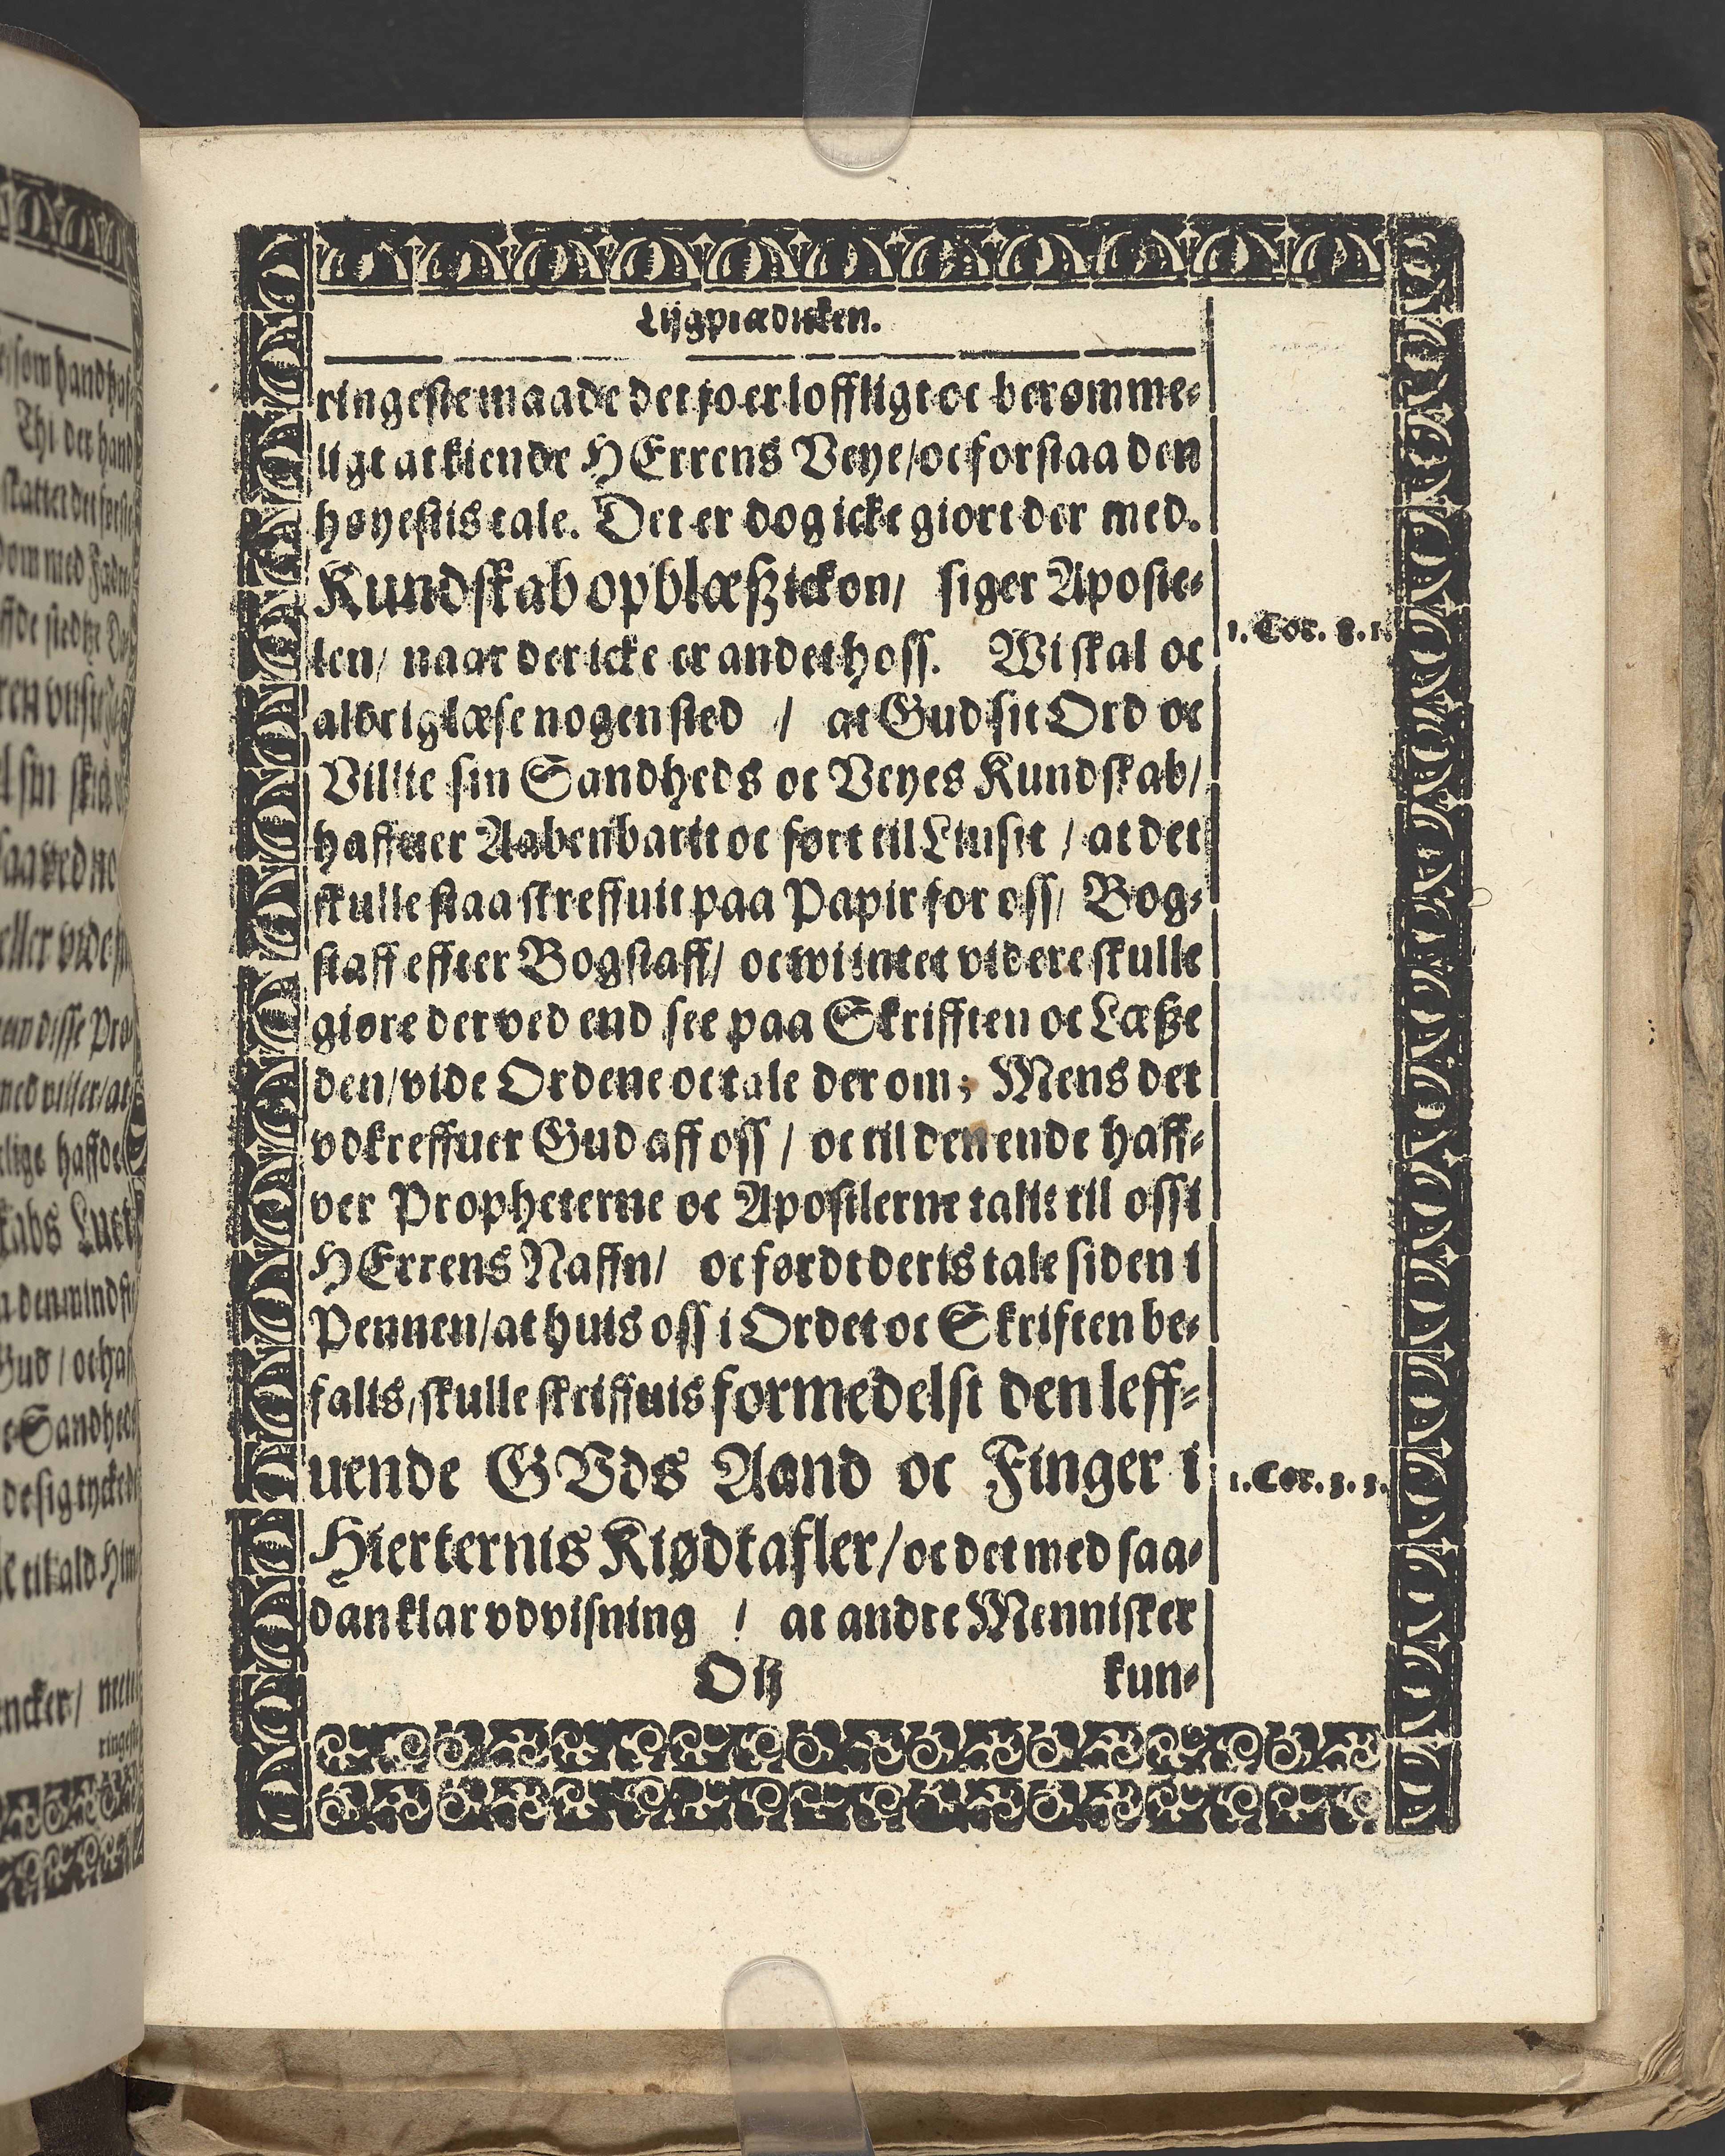 Lijgprædicken.
ringeste maade det jo er loffligt oc berømme-
ligt at kiende HErrens Veye/ oc forstaa den
høyestis tale. Det er dog icke giort der med.
Kundskab opblæsz ickon/ siger Aposte-
len/ naar der icke er andet hoss. Wi skal oc
aldrig læse nogensted / at Gud sit Ord oc
Villie sin Sandheds oc Veyes Kundskab/
haffuer Aabenbarit oc ført til Liusit / at det
skulle staa skreffuit paa Papir for oss/ Bog-
staff effter Bogstaff/ oc wi intet videre skulle
giøre der ved end see paa Skrifften oc Læsze
den/ vide Ordene oc tale der om; Mens det
vdkreffuer Gud aff oss / oc til den ende haff-
ver Propheterne oc Apostlerne talit til oss i
HErrens Naffn/ oc førdt deris tale siden i
Pennen/ at huis oss i Ordet oc Skriften be-
falis, skulle skriffuis formedelst den leff-
uende GVds Aand oc Finger i
Hierternis Kiødtafler/ oc det med saa-
dan klar vdvisning / at andre Mennisker
O ij kun-
1. Cor. 8. 1.
1. Cor. 3. 3.
som handhaf
Thi der hand
skattet det første
dom med Fader
Sandheds
de sig tyckede
til ald Him
ringeste